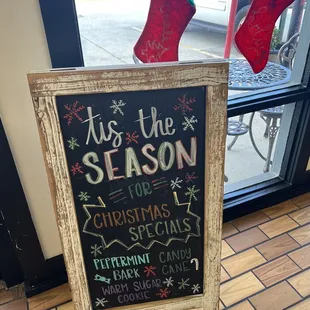 'tis the
SEASON
FOR
CHRISTMAS
SPECIALS
PEPPERMINT
BARK
CANDY
CANE
WARM SUGAR
COOKIE